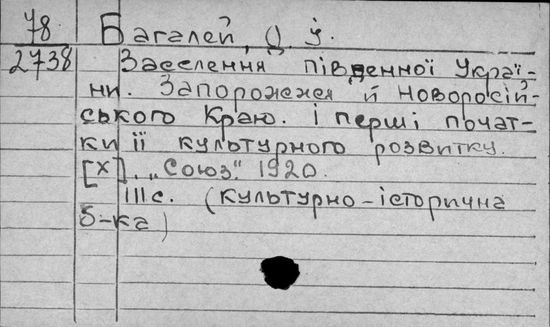 78 Багалей, Д. І.
2738 Заселення південної Украї-
ни. Запорожжя й Новоросій-
ського Краю. і перші почат-
ки її культурного розвитку.
[Х]. „Союз". 1920.
111 с. (Культурно-історична
б-ка)